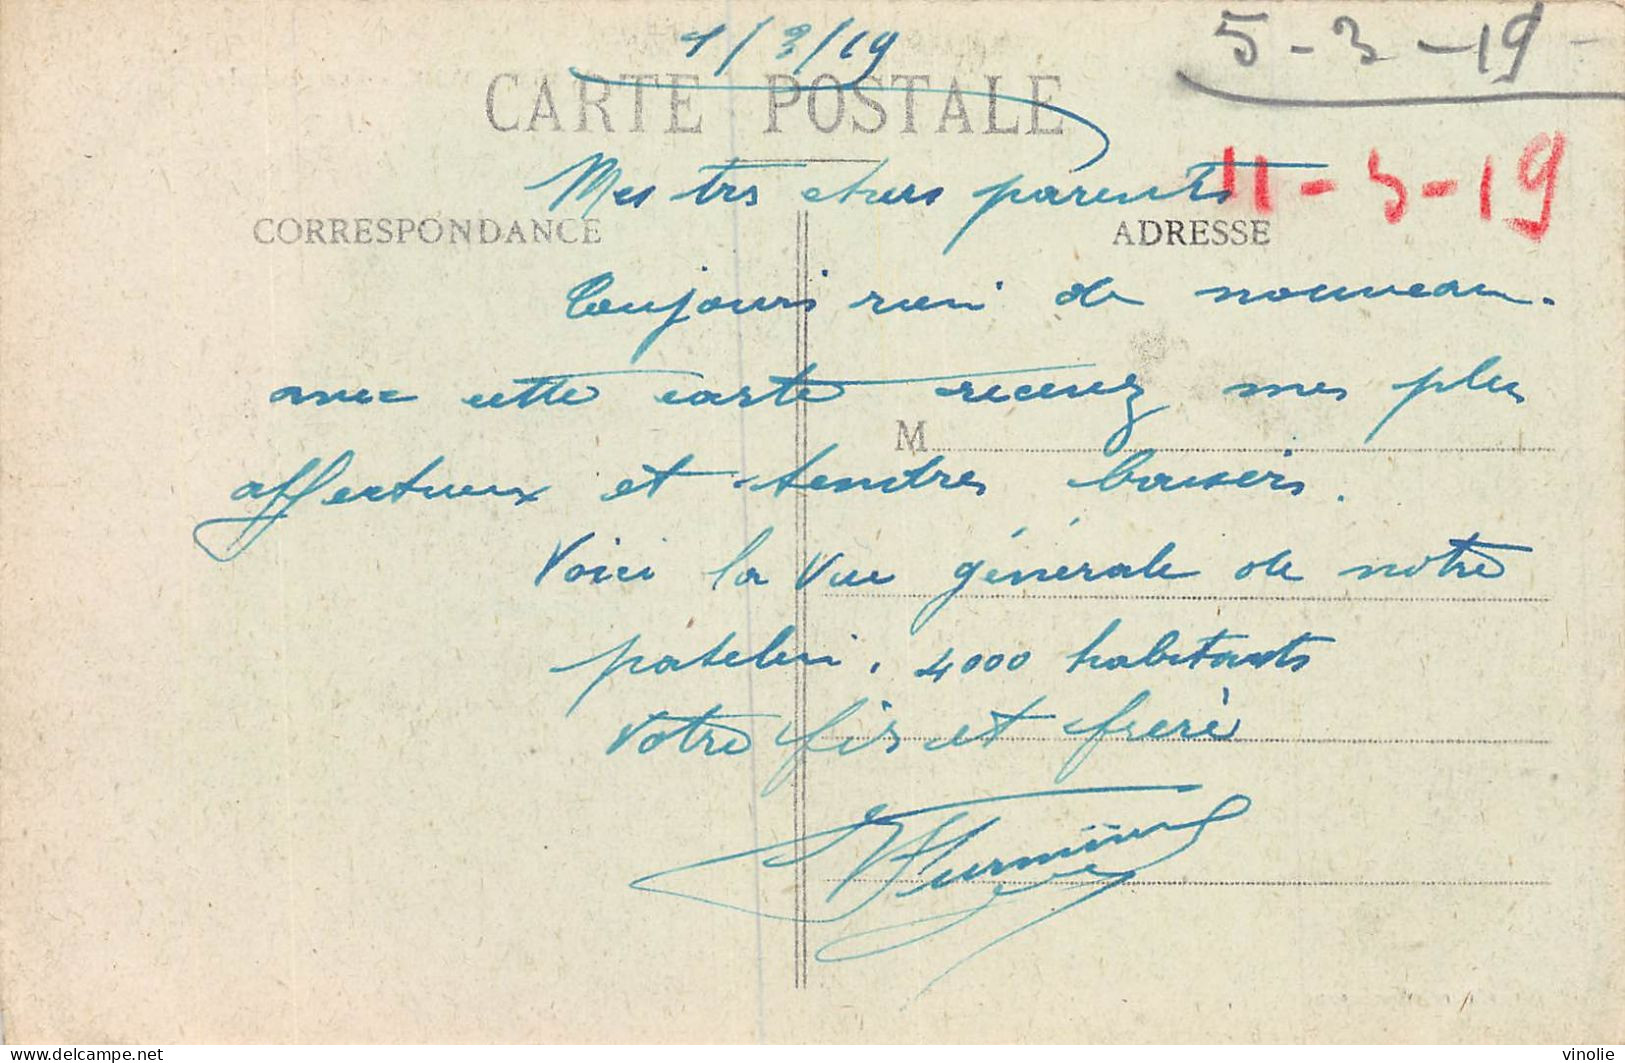 1/3/19
5-3-19-
CARTE POSTALE
11-3-19
Mes trs chers parents
CORRESPONDANCE
ADRESSE
Toujours rien de nouveau.
avec cette carte recevez mes plus
M
affectueux et tendres baisers.
Voici la vue générale de notre
patelin. 4000 habitants
Votre fis et frère
delcampe.net
vinolie